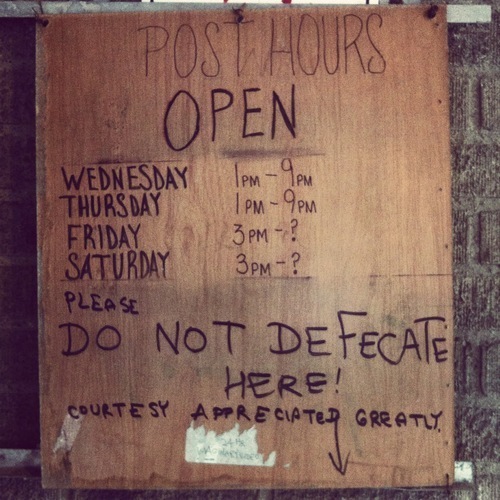 POST HOURS
OPEN
WEDNESDAY 1PM - 9PM
THURSDAY 1PM - 9PM
FRIDAY 3PM - ?
SATURDAY 3PM - ?
PLEASE
DO NOT DEFECATE
HERE!
COURTESY APPRECIATED GREATLY.